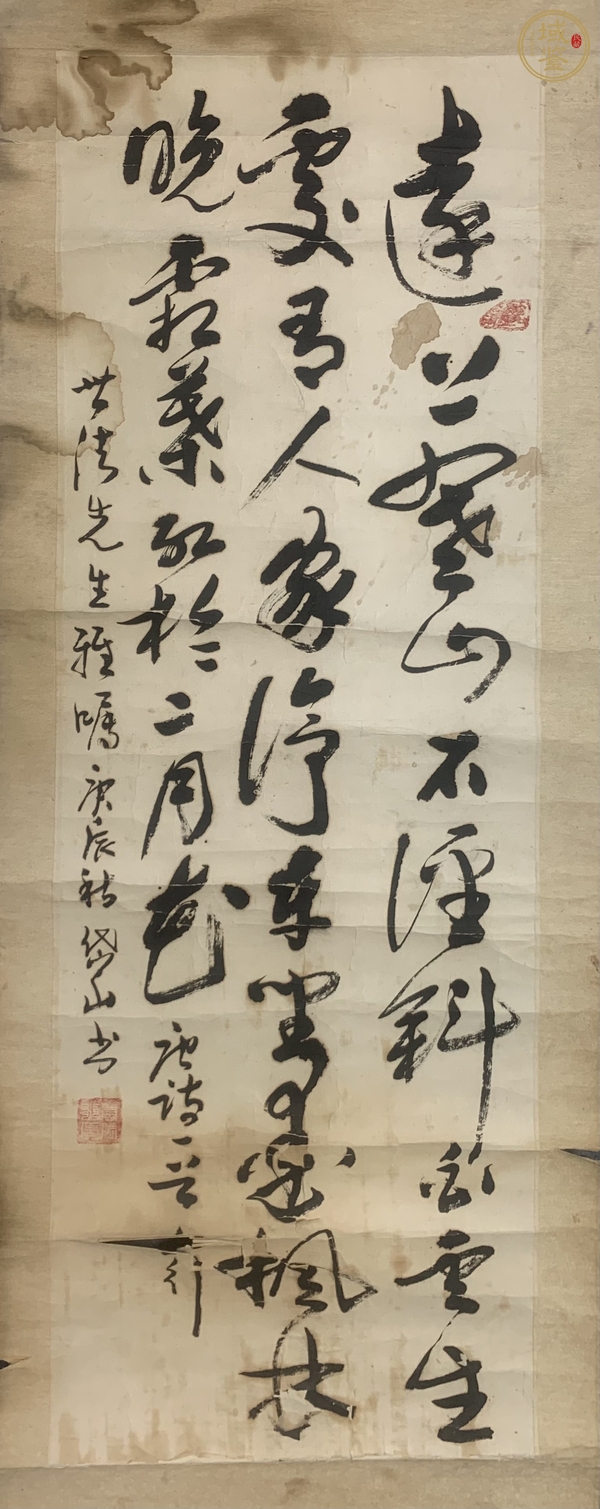 遠上寒山石徑斜白雲生
處有人家停車坐愛楓林
晚霜葉紅於二月花 唐詩一首
世法先生雅嘱 庚辰秋 岱山书